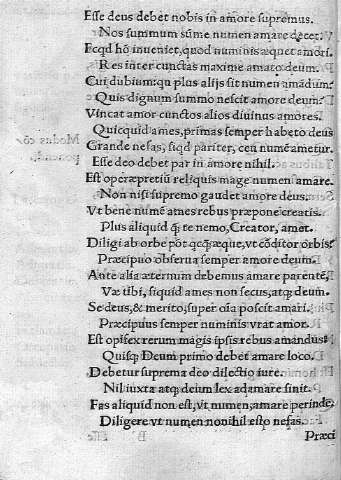 Esse deus debet nobis in amore supremus.
Nos summum sūme numen amare decet.
Ecqd hō inveniet, quod numinis æquet amori.
Res inter cunctas maxime amato deum.
Cui dubium: qu plus alijs sit numen amādum:
Quis dignum summo nescit amore deum:
Vincat amor cunctos alios divinus amores.
Quicquid ames, primas semper habeto deus
Grande nefas, siqd pariter, ceu numē ametur.
Esse deo debet par in amore nihil.
Est operæpretiū reliquis mage numen amare.
Non nisi supremo gaudet amore deus.
Vt bene numē ames rebus præpone creatis.
Plus aliquid q̄; te nemo, Creator, amet.
Diligi ab orbe pōt qcq̄; æque, vt cōditor orbis:
Præcipuo observa semper amore deum.
Ante alia æternum debemus amare parentē,
Væ tibi, siquid ames non secus, atq; deum.
Se deus, & merito, super oīa poscit amari.
Præcipuus semper numinis vrat amor.
Est opifex rerum magis ipsis rebus amandus:
Quisq; Deum primo debet amare loco.
Debetur suprema deo dilectio iure.
Nil iuxta atq; deum lex adamare sinit.
Fas aliquid non est, vt numen, amare perinde,
Diligere vt numen nonnihil esto nefas.
Præci